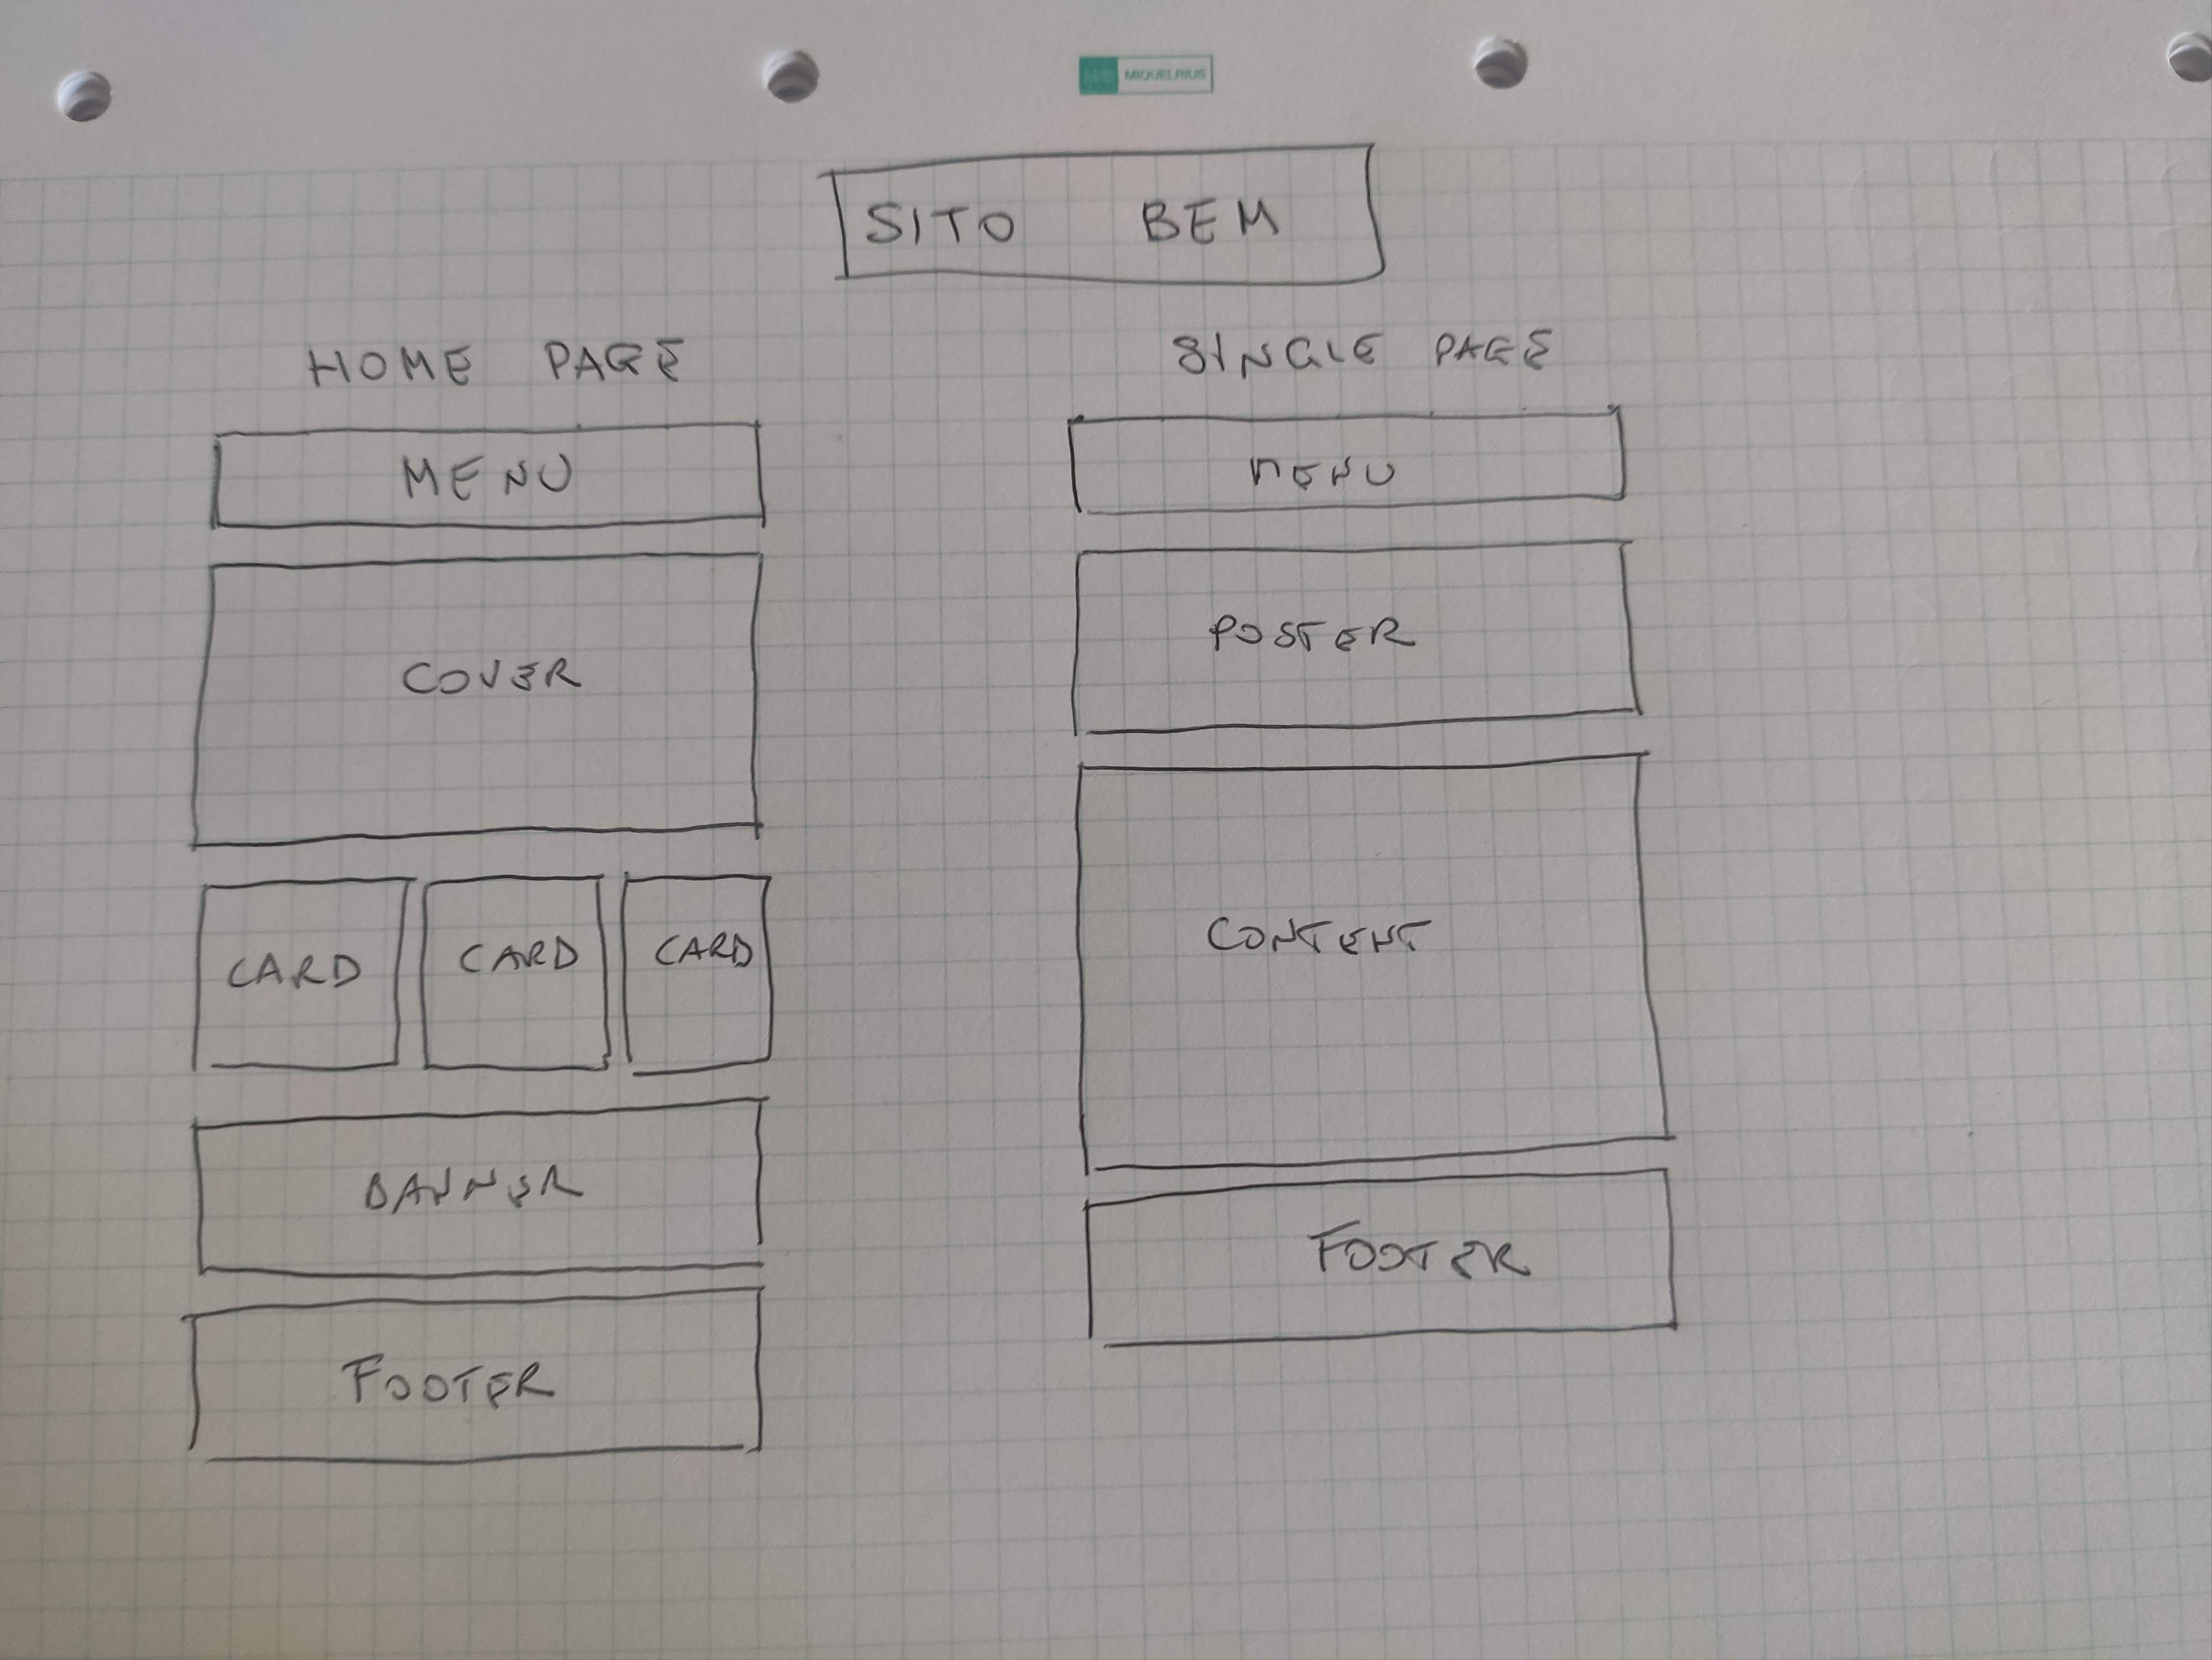 MIQUELRIUS
SITO BEM
HOME PAGE
MENU
COVER
CARD CARD CARD
BANNER
FOOTER
SINGLE PAGE
MENU
POSTER
CONTENT
FOOTER